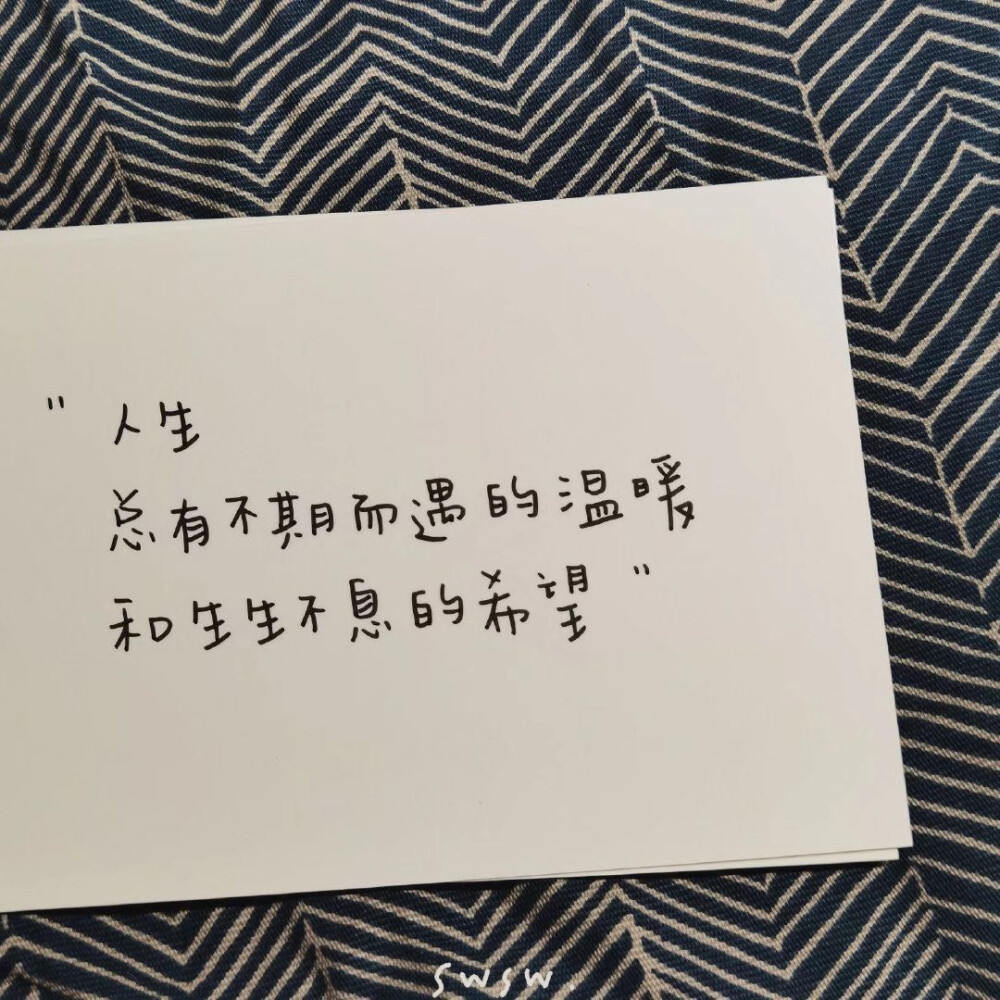 " 人生
总有不期而遇的温暖
和生生不息的希望 "
swsw.